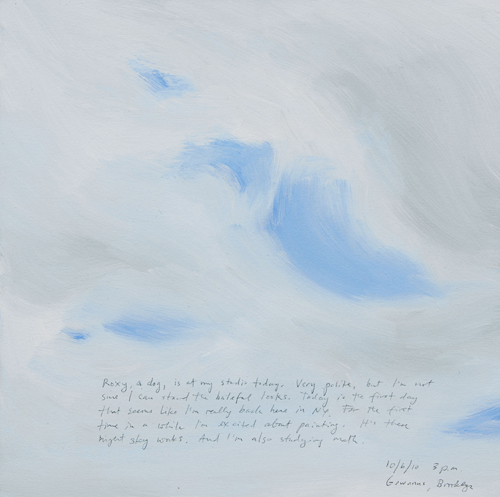 Roxy, a dog, is at my studio today. Very polite, but I'm not
sure I can stand the baleful looks. Today is the first day
that seems like I'm really back here in NY. For the first
time in a while I'm excited about painting. It's these
night sky works. And I'm also studying math.
10/6/10 3 p.m.
Gowanus, Brooklyn